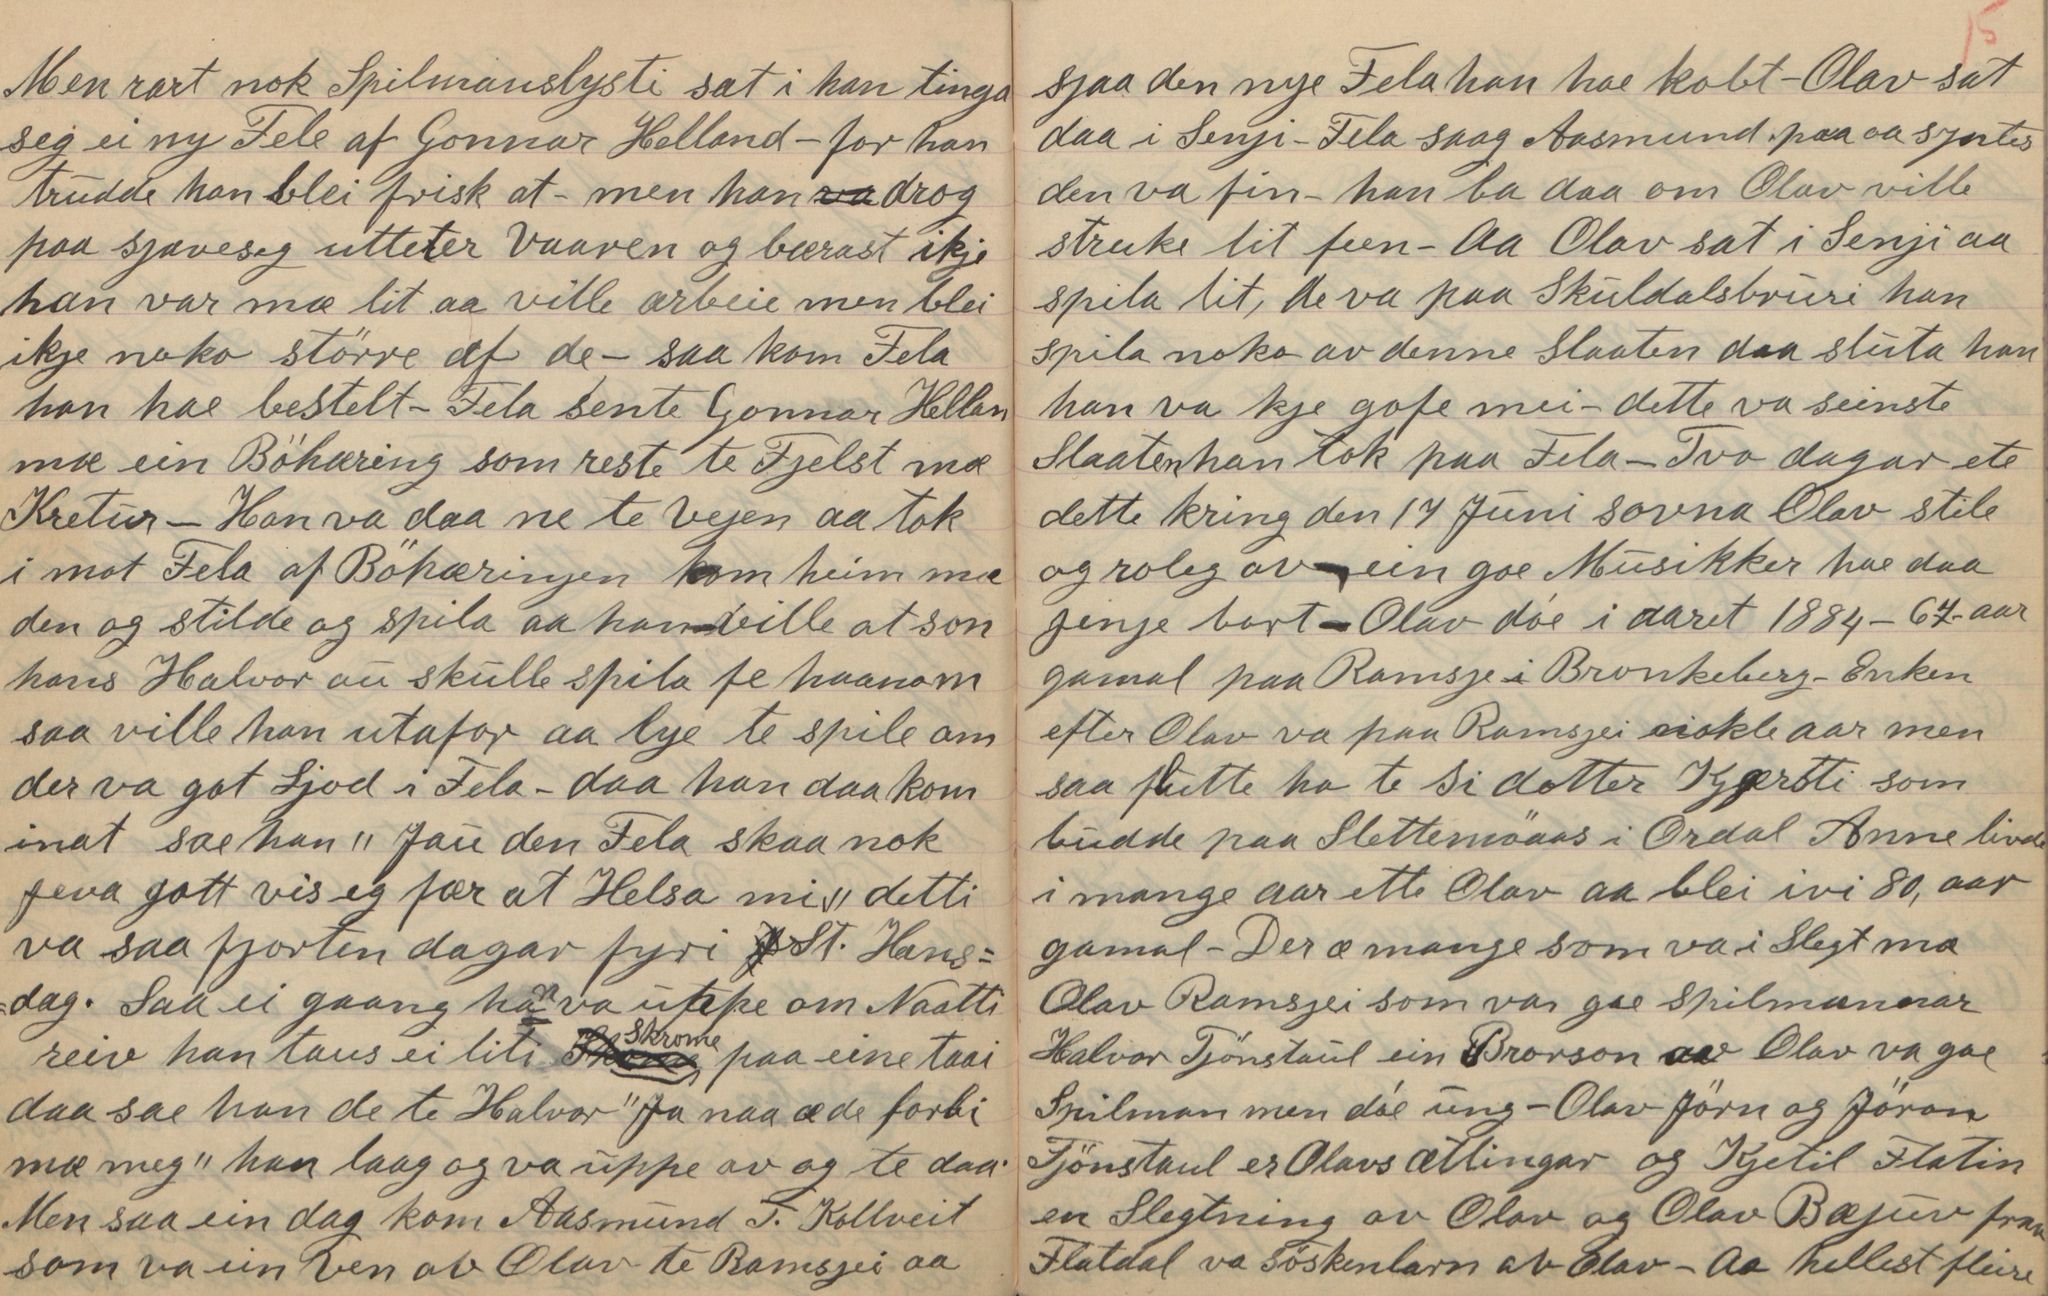 Men rart nok Spilmanslysti sat i han tinga
seg ei ny Fele af Gonnar Helland - for han
trudde han blei frisk at - men han va drog
paa sjaveseg uttetter Vaaren og bærast ikje
han var mæ lit aa ville arbeie men blei
ikje noko större af de - saa kom Fela
han hae bestelt - Fela sente Gonnar Hellan
mæ ein Böhæring som reste te Fjelst mæ
Kretur - Han va daa ne te Vejen aa tok
i mot Fela af Böhæringen kom heim mæ
den og stilde og spila aa han ville at son
hans Halvor au skulle spila fe haanom
saa ville han utafor aa lye te spile om
der va got Ljod i Fela - daa han daa kom
inat sae han " Jau den Fela skaa nok
jeva gott vis eg fær at Helsa mi " detti
va saa fjorten dagar fyri St. Hans=
=dag. Saa ei gaang han va uppe om Naatti
reiv han taus ei liti Skrome paa eine taai
daa sae han de te Halvor " Ja naa æ de forbi
mæ meg " han laag og va uppe av og te daa.
Men saa ein dag kom Aasmund T. Kollveit
som va ein Ven av Olav te Ramsjei aa
15
sjaa den nye Fela han hae kobt - Olav sat
daa i Senji - Fela saag Aasmund paa aa syntes
den va fin - han ba daa om Olav ville
struke lit feen - Aa Olav sat i Senji aa
spila lit, de va paa Skuldalsbruri han
spila noko av denne Slaaten daa sluta han
han va kje gofe mei - dette va seinste
Slaaten han tok paa Fela - Tvo dagar ete
dette kring den 17 Juni sovna Olav stile
og roleg av - ein goe Musikker hae daa
jenje bort - Olav döe i aaret 1884 - 67 - aar
gamal paa Ramsje i Bronkeberg - Enken
efter Olav va paa Ramsjei niokle aar men
saa flutte ho te Si dotter Kjærsti som
budde paa Slettemöaas i Ordal Anne livde
i mange aar ette Olav aa blei ivi 80, aar
gamal - Der æ mange som va i Slegt mæ
Olav Ramsjei som var goe spilmannar
Halvor Tjönstaul ein Brorson av Olav va goe
Spilman men döe ung - Olav Jörn og Jöron
Tjönstaul er Olavs ætlingar og Kjetil Flatin
en Slegtning av Olav og Olav Bæjuv fraa
Flatdal va söskenbarn av Olav - Aa hellest fleire